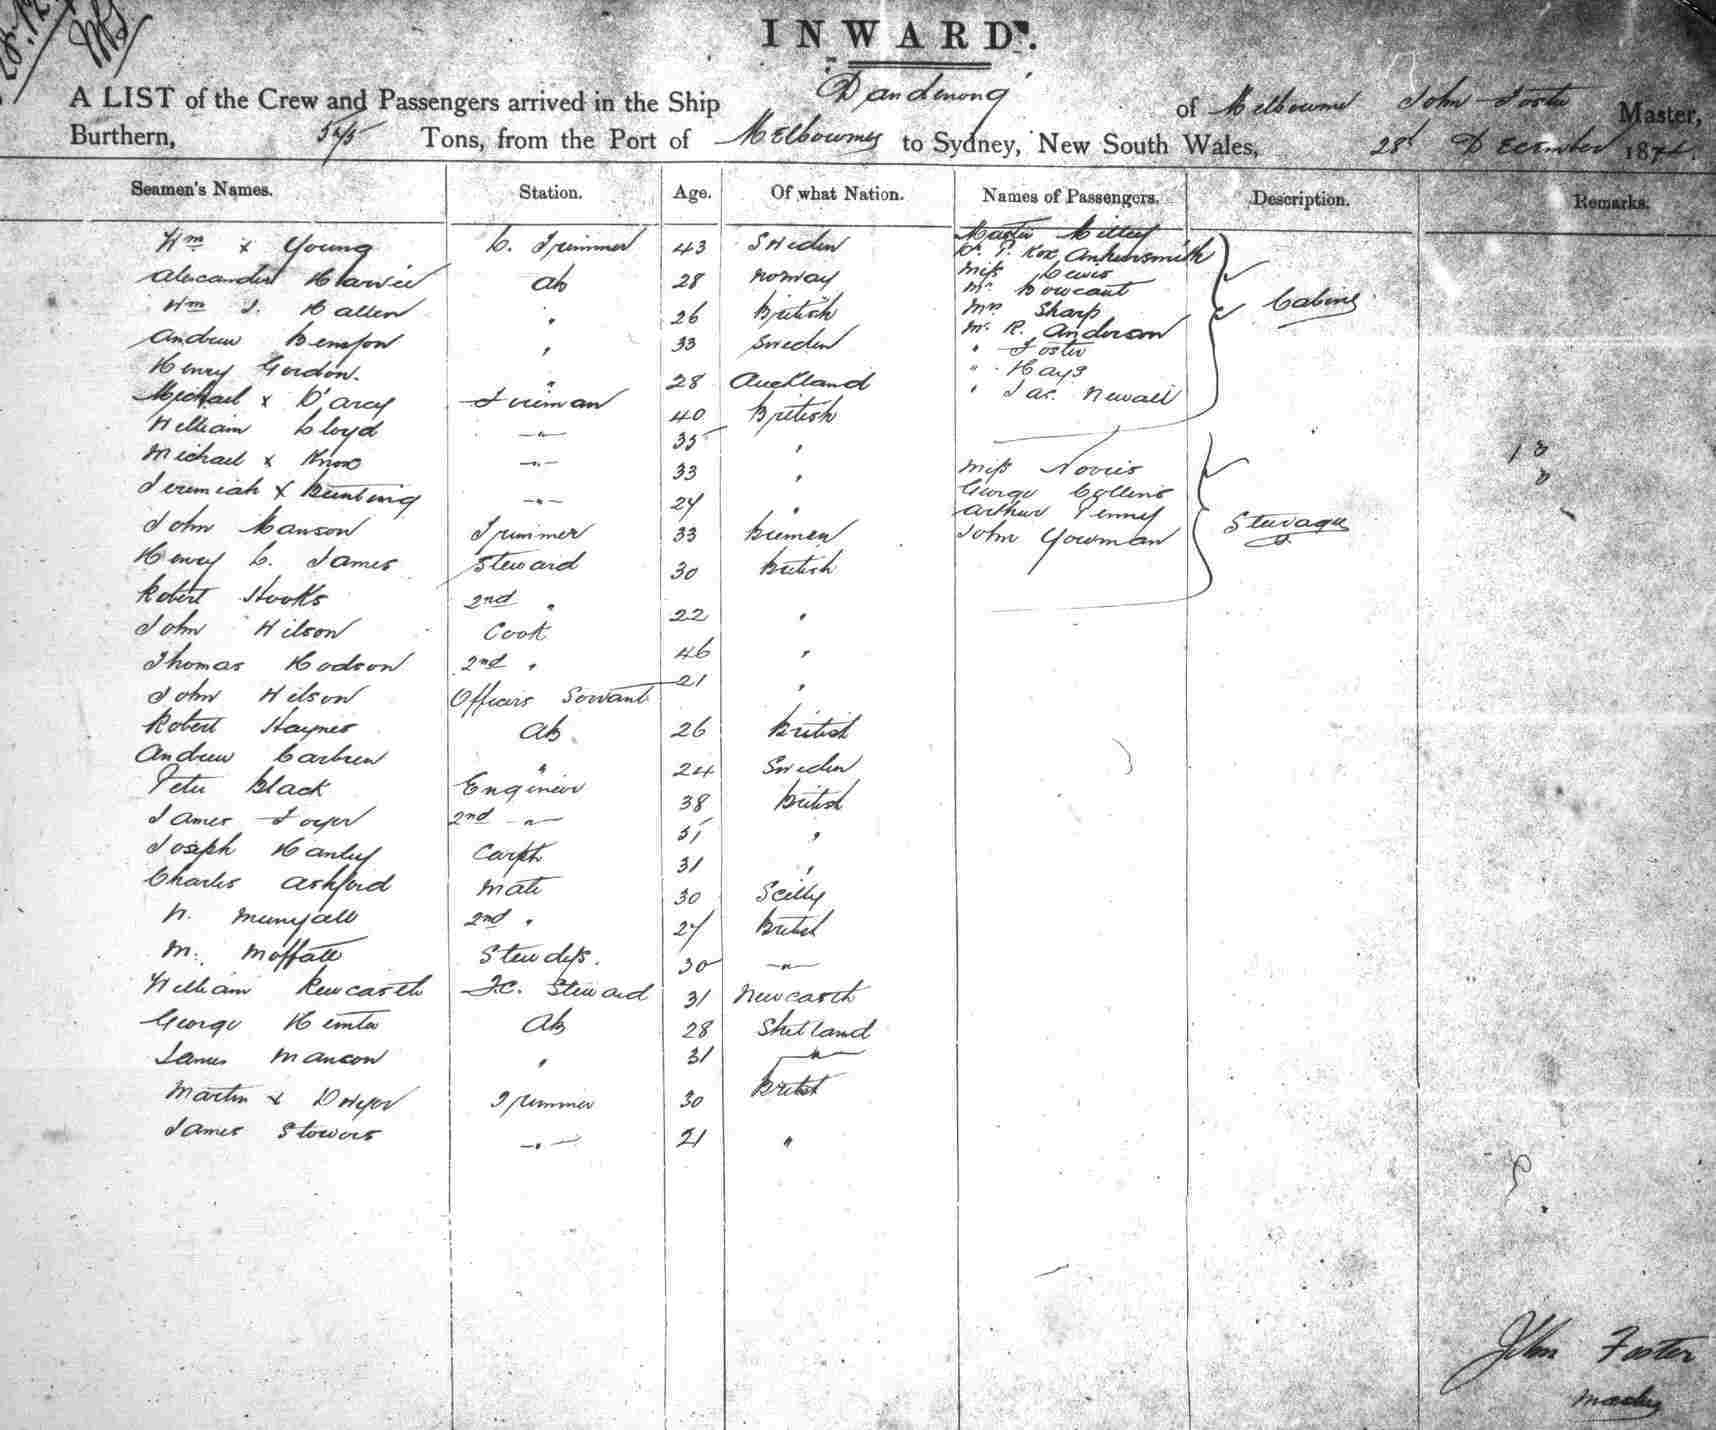 INWARD.
A LIST of the Crew and Passengers arrived in the Ship Dandenong of Melbourne John Foster Master,
Burthern, Tons, from the Port of Melbourne to Sydney, New South Wales, 28th December 187
Seamen's Names. Station. Age. Of what Nation. Names of Passengers. Description. Remarks.
Wm x Young C. Trimmer 43 Sweden Master
Alexander Harvie Ab 28 Norway Miss Lewis
Wm J. Hallen " 26 British Mrs Sharp Cabins
Andrew Bengson " 33 Sweden Mr R. Anderson
Henry Gordon. " 28 Auckland " Foster
Michael x D'arcy Fireman 40 British " Hays
William Lloyd -"- 35 " " Jas. Newall
Michael x Knox -"- 33 " Miss Norris
Jeremiah x Bunting -"- 24 " George Collins
John Manson Trimmer 33 Bremen Arthur Penny
Henry C. James Steward 30 British John Yowman Steerage
Robert Hooks 2nd " 22 "
John Wilson Cook 46 "
Thomas Hodson 2nd " 21 "
John Wilson Officers Servant "
Robert Haynes Ab 26 British
Andrew " 24 Sweden
Peter Black Engineer 38 British
James 2nd -"- 31 "
Joseph Hanley Carptr 31 "
Charles Ashford Mate 30 Scilly
2nd " 27 British
M. Moffatt Stewdss. 30 -"-
William Newcastle F.C. Steward 31 Newcastle
George Hunter Ab 28 Shetland
James Manson " 31 -"-
Martin x Dwyer Trimmer 30 British
James Stowers -"- 21 "
John Foster
Master